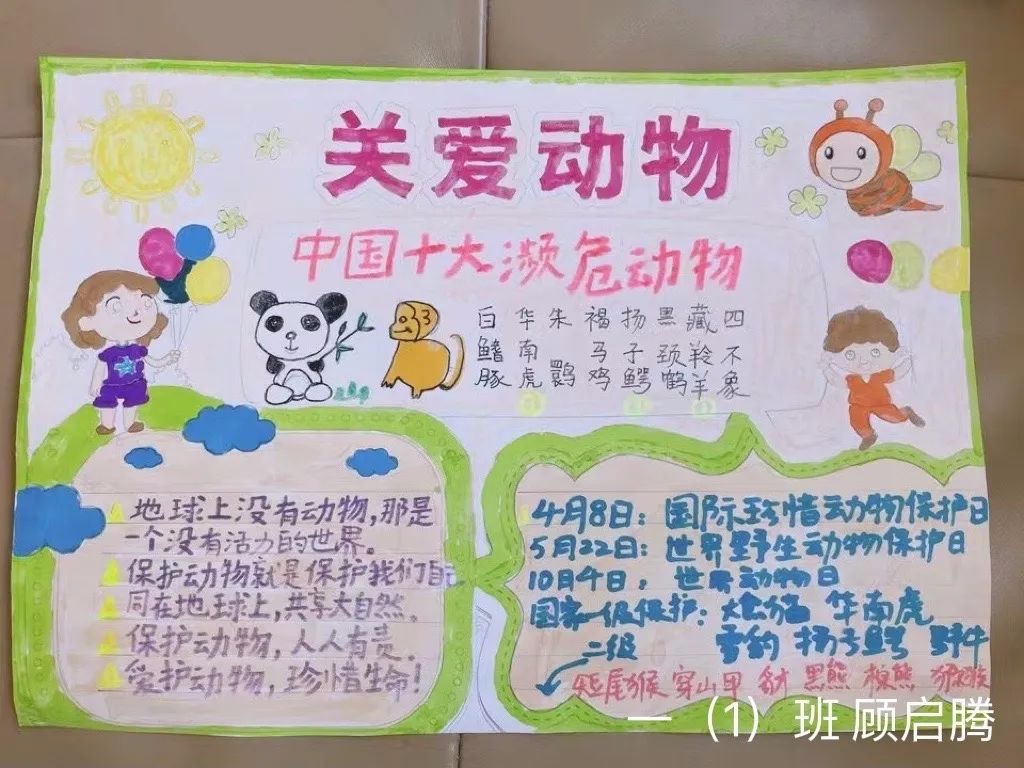 关爱动物
中国十大濒危动物
白鳍豚
华南虎
朱鹮
褐马鸡
扬子鳄
黑颈鹤
藏羚羊
四不象
地球上没有动物,那是
一个没有活力的世界。
保护动物就是保护我们自己
同在地球上,共享大自然。
保护动物,人人有责。
爱护动物,珍惜生命!
4月8日:国际珍惜动物保护日
5月22日:世界野生动物保护日
10月4日,世界动物日
国家一级保护:大熊猫 华南虎
二级 雪豹 扬子鳄 野牛
短尾猴 穿山甲 豺 黑熊 棕熊
一(1)班 顾启腾